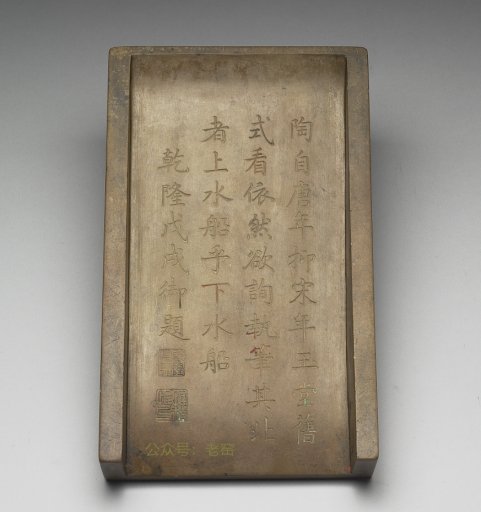 陶自唐年抑宋年玉堂舊
式看依然欲詢執筆其間
者上水船乎下水船
乾隆戊戌御題
公众号：老窑